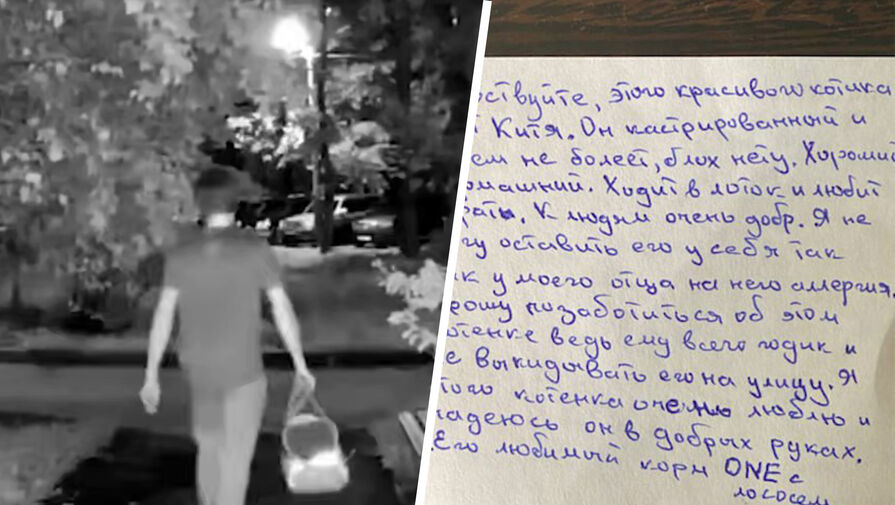 ствуйте, этого красивого котика
Китя. Он кастрированный и
ем не болеет, блох нету. Хороший
омашний. Ходит в лоток и любит
рать. К людям очень добр. Я не
гу оставить его у себя так
к у моего отца на него аллергия.
рошу позаботиться об этом
отенке ведь ему всего годик и
е выкидывать его на улицу. Я
того котенка очень люблю и
надеюсь он в добрых руках.
Его любимый корм ONE с
лососем